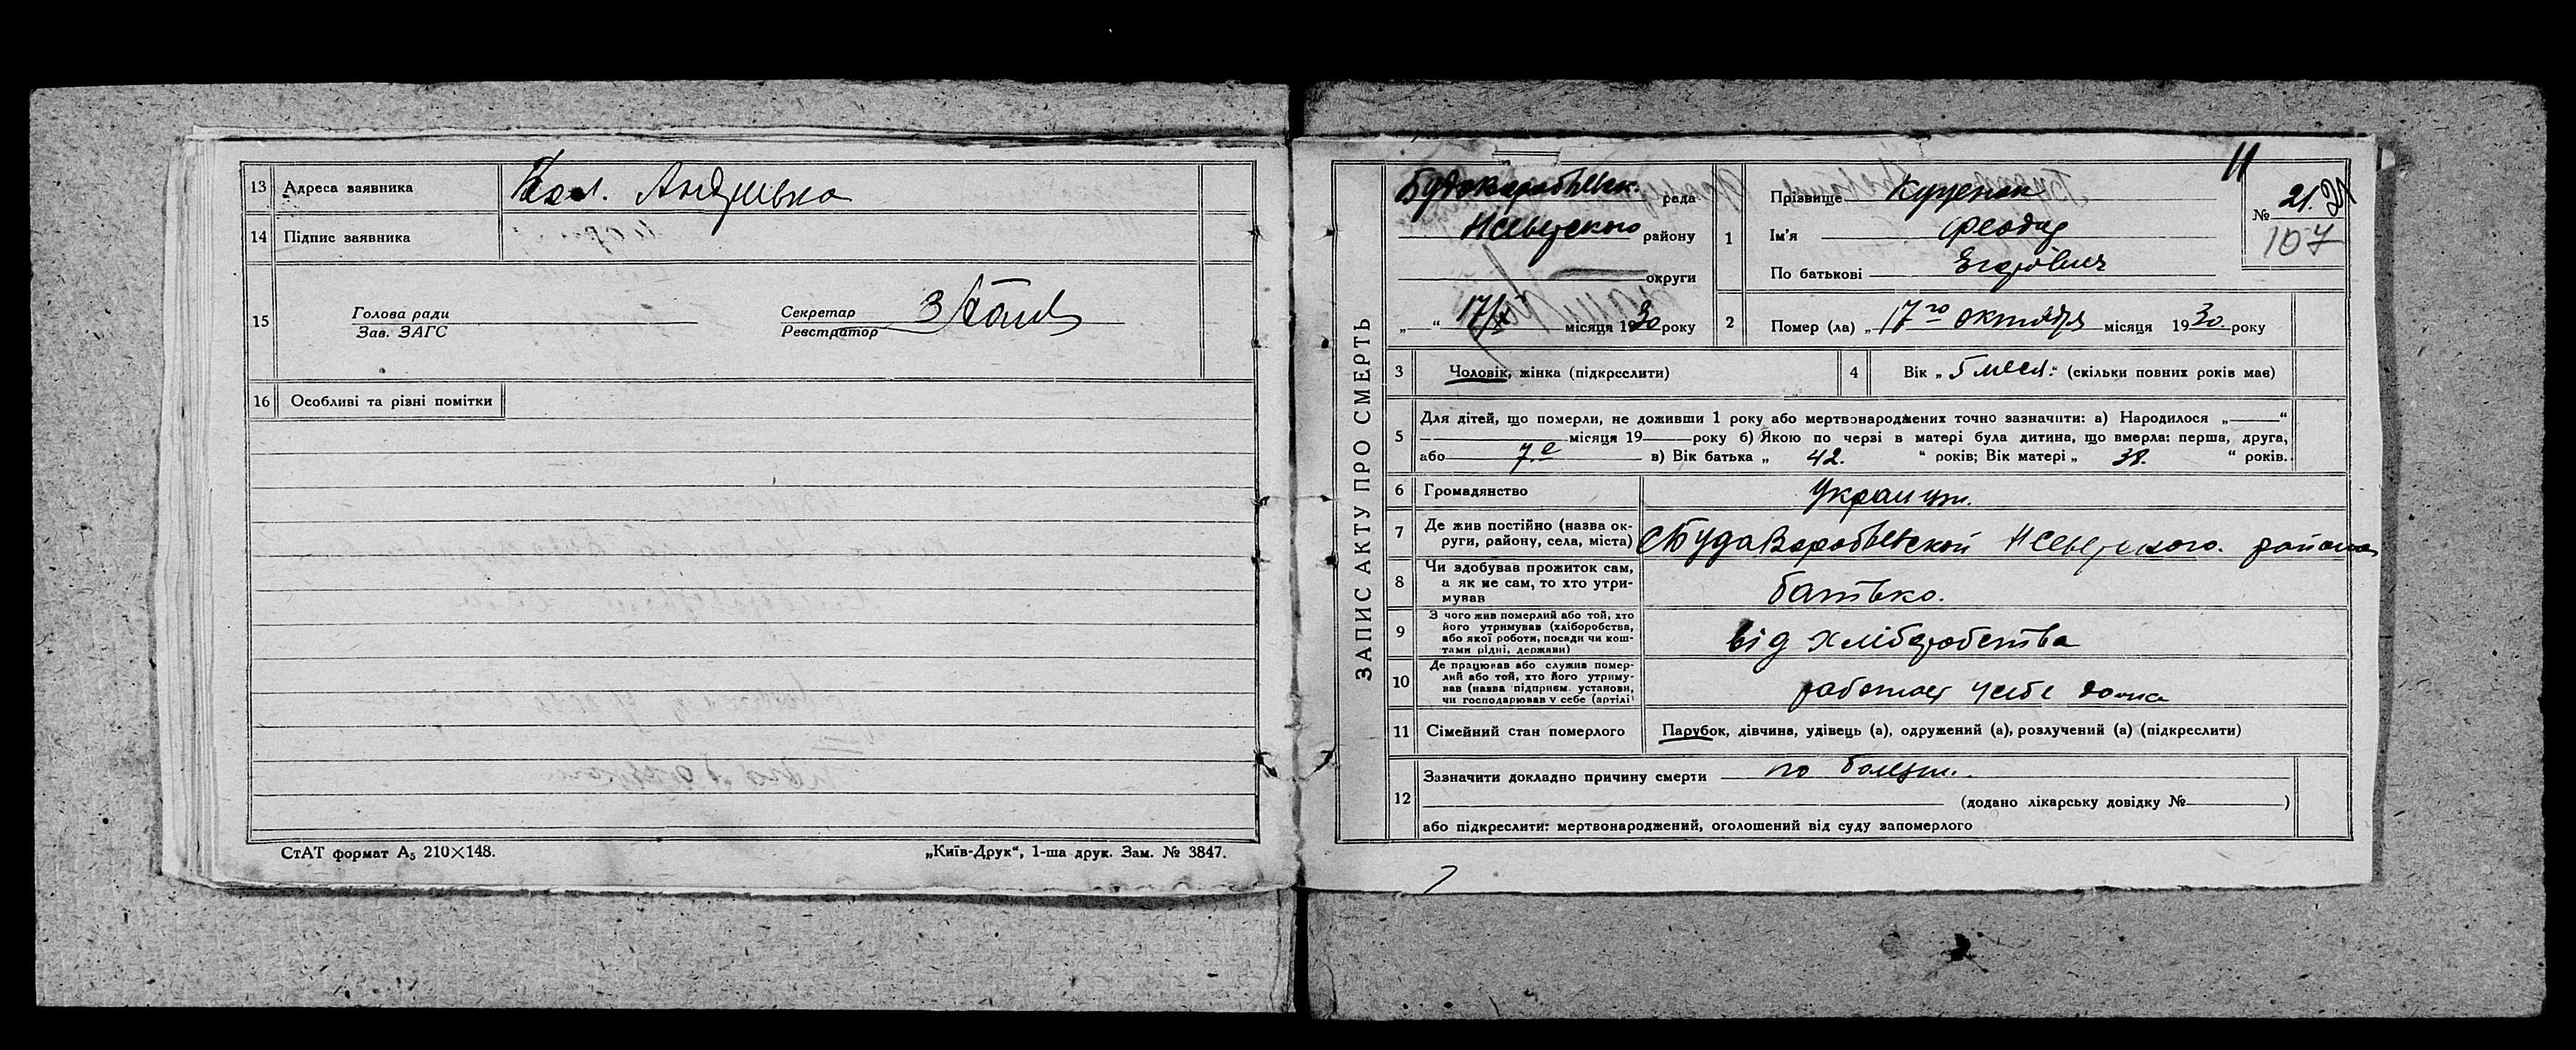 13 Адреса заявника Андріивка
14 Підпис заявника
15 Голова ради
Зав. ЗАГС
Секретар
Реєстратор
16 Особливі та різні помітки
СтАТ формат А5 210×148.
„Київ-Друк“, 1-ша друк. Зам. № 3847.
ЗАПИС АКТУ ПРО СМЕРТЬ
Будоворобьевск. рада
району
округи
„ “ 17/X місяця 1930 року
1 Прізвище Куценок
Ім'я Феодор
По батькові Егорович
№ 21. 21
107
2 Помер (ла) „17го октября місяця 1930. року
3 Чоловік, жінка (підкреслити)
4 Вік „5 мес.“ (скільки повних років має)
5 Для дітей, що померли, не доживши 1 року або мертвонароджених точно зазначити: а) Народилося „ “
місяця 19 року б) Якою по черзі в матері була дитина, що вмерла: перша, друга,
або 7.е в) Вік батька „ 42. “ років; Вік матері „ 38. “ років.
6 Громадянство Украин
7 Де жив постійно (назва ок-
руги, району, села, міста) с Буда Воробьевской района
8 Чи здобував прожиток сам,
а як не сам, то хто утри-
мував батько.
9 З чого жив померлий або той, хто
його утримував (хліборобства,
або якої роботи, посади чи кош-
тами рідні, держави) від хліборобства
10 Де працював або служив помер-
лий або той, хто його утриму-
вав (назва підприєм. установи,
чи господарював у себе (артілі) работает у себе дома
11 Сімейний стан померлого Парубок, дівчина, удівець (а), одружений (а), розлучений (а) (підкреслити)
12 Зазначити докладно причину смерти по болезни.
(додано лікарську довідку № )
або підкреслити: мертвонароджений, оголошений від суду запомерлого